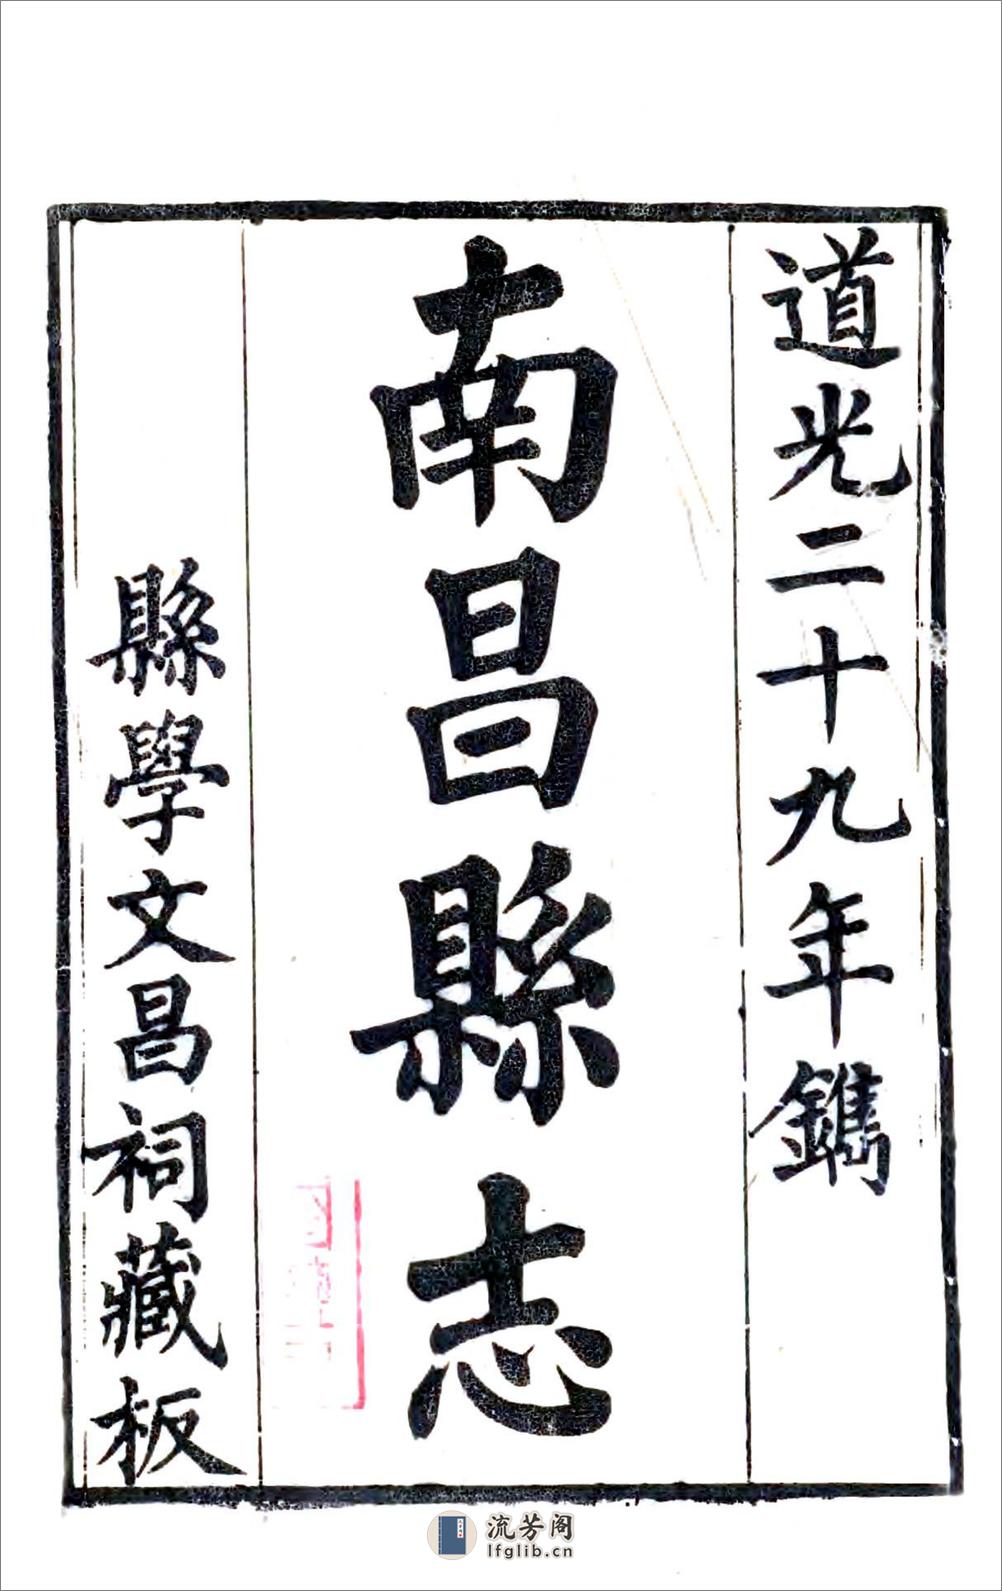 道光二十九年鐫
南昌縣志
縣學文昌祠藏板
流芳阁
lfglib.cn